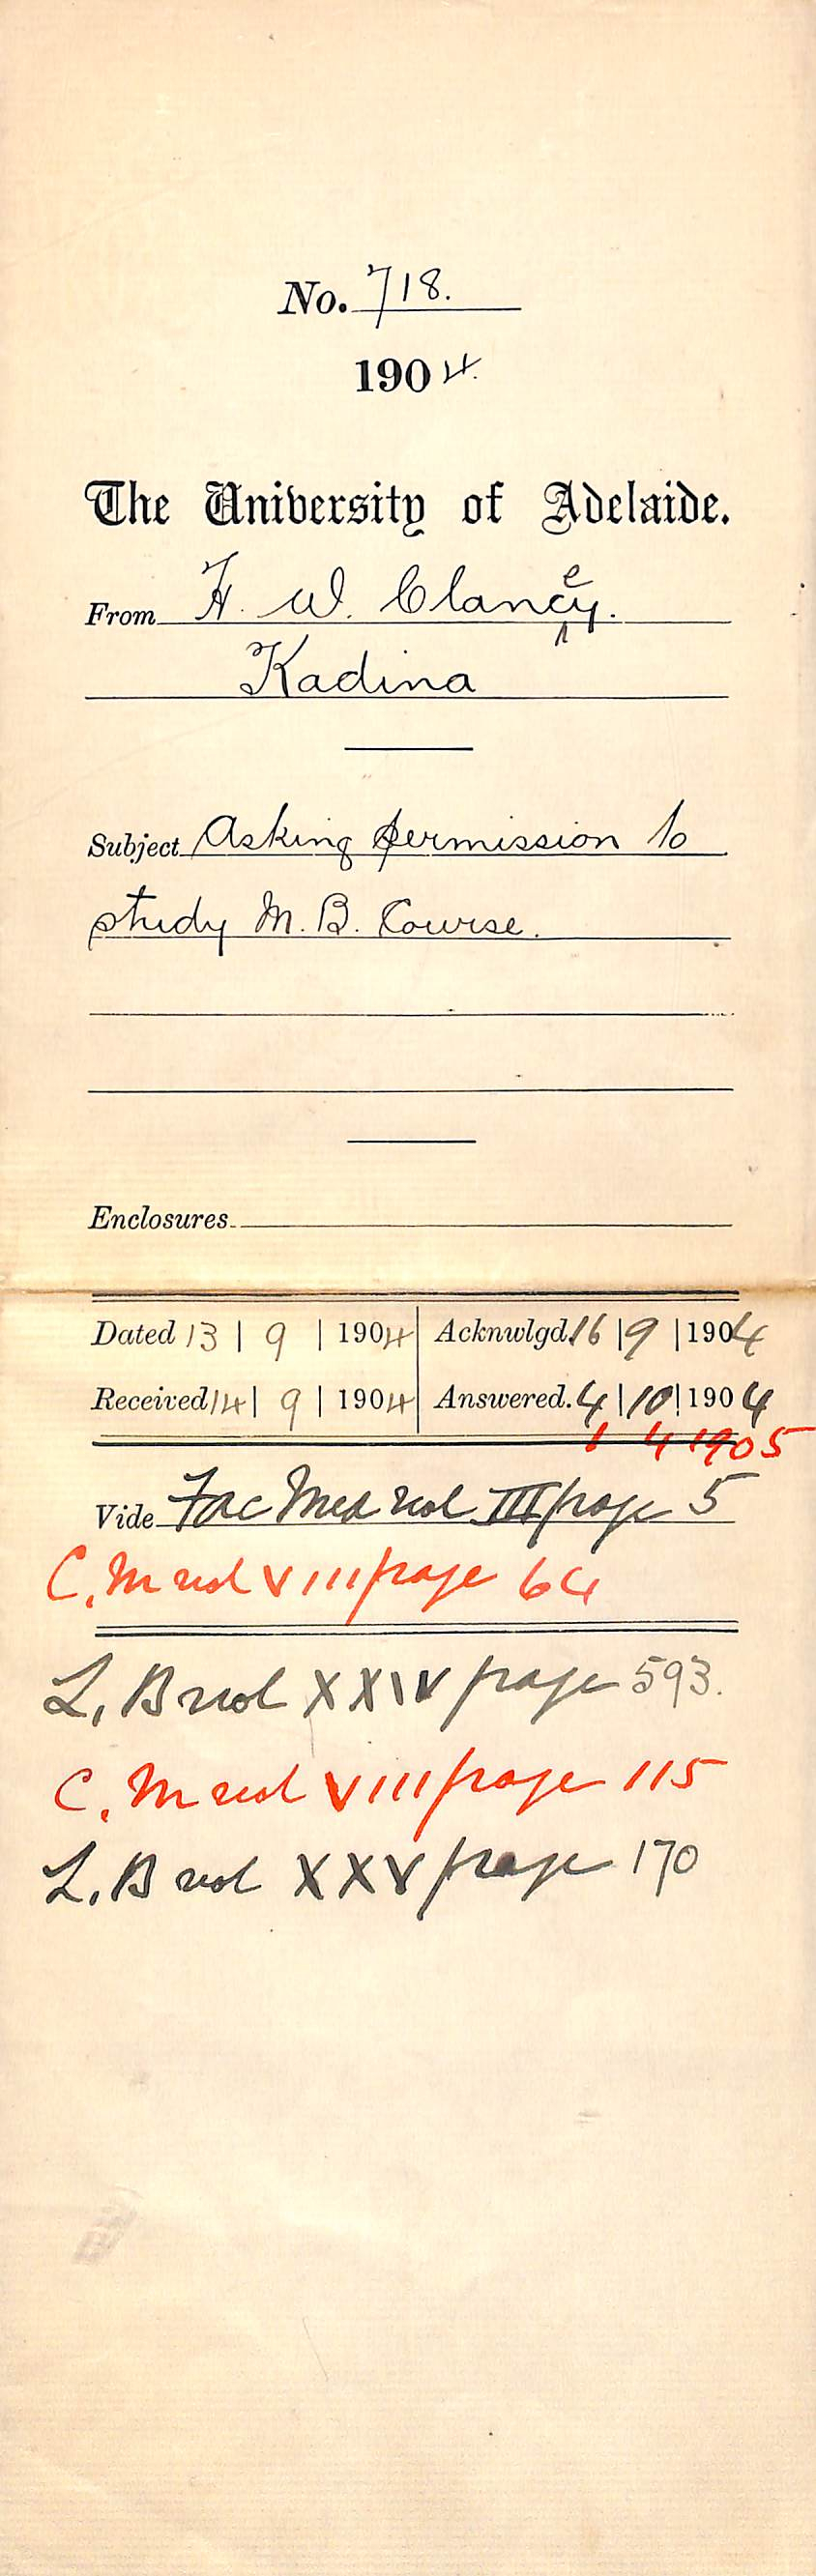 No. 718.
1904.
The University of Adelaide.
From H. W. Clancey.
Kadina
Subject Asking permission to
study M. B. Course.
Enclosures
Dated 13 | 9 | 1904 Acknwlgd. 16 | 9 | 1904
Received 14 | 9 | 1904 Answered. 4 | 10 | 1904
1 4 1905
Vide Fac Med vol III page 5
C. M vol VIII page 64
L. B vol XXIV page 593.
C. M vol VIII page 115
L. B vol XXV page 170